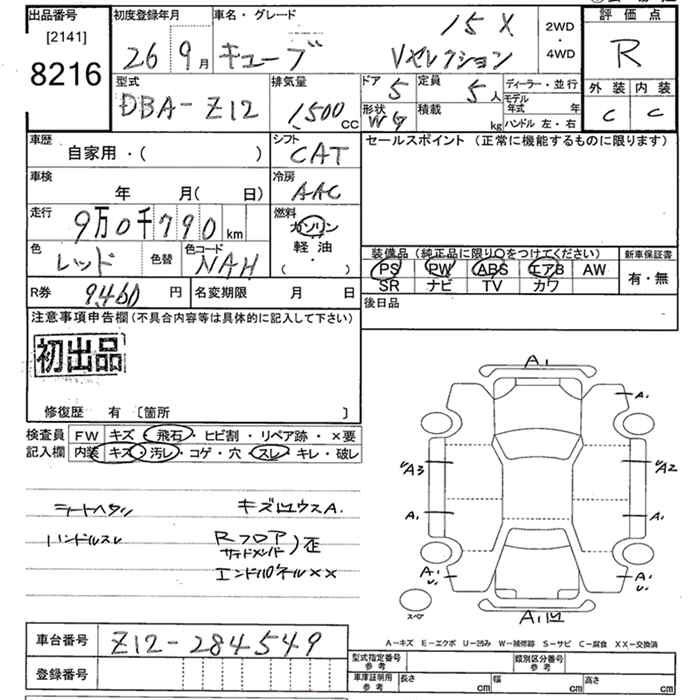 出品番号 初度登録年月 車名・グレード 評価点
[2141] 26年9月 キューブ 15X Vセレクション 2WD・4WD R
8216 外装 内装
型式 排気量 ドア 5 定員 5人 ディーラー・並行 C C
DBA-Z12 1,500cc 形状 WG 積載 kg モデル年式 年 ハンドル 左・右
車歴 シフト セールスポイント(正常に機能するものに限ります)
自家用・( ) CAT
車検 冷房
年 月( 日) AAC
走行 燃料
9万0千790km ガソリン
色 レッド 色替 色コード NAH 軽油 ( )
装備品(純正品に限り○をつけてください) 新車保証書
PS PW ABS エアB AW 有・無
SR ナビ TV カワ
R券 9460円 名変期限 月 日 後日品
注意事項申告欄(不具合内容等は具体的に記入して下さい)
初出品
修復歴 有 〔箇所 〕
検査員 FW キズ・飛石・ヒビ割・リペア跡・×要
記入欄 内装 キズ・汚レ・コゲ・穴・スレ・キレ・破レ
シートヘタリ キズ凹ウスA.
ハンドルスレ Rフロア サイドメンバー)歪
エンドパネル××
A1
A1
UA3 UA2
A1 A1
A1 U1 A1 U1
スペア A1凹
A-キズ E-エクボ U-凹み W-補修跡 S-サビ C-腐食 XX-交換済
車台番号 Z12-284549
登録番号
型式指定番号 参考 類別区分番号 参考
車庫証明用 参考 長さ cm 幅 cm 高さ cm